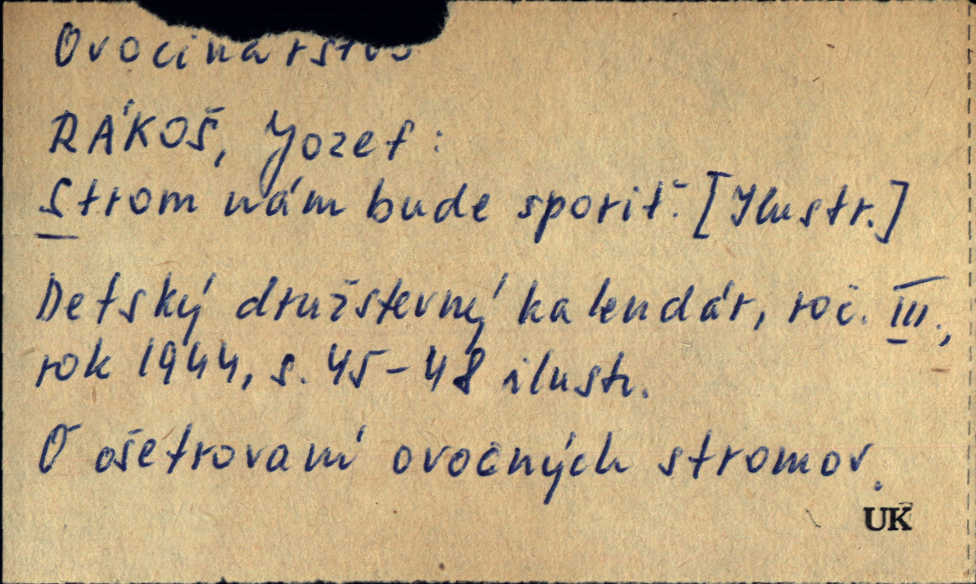 Ovocinárstvo
RÁKOŠ, Jozef:
Strom nám bude sporiť. [Ilustr.]
Detský družstevný kalendár, roč. III.,
rok 1944, s. 45-48 ilustr.
O ošetrovaní ovocných stromov.
UK